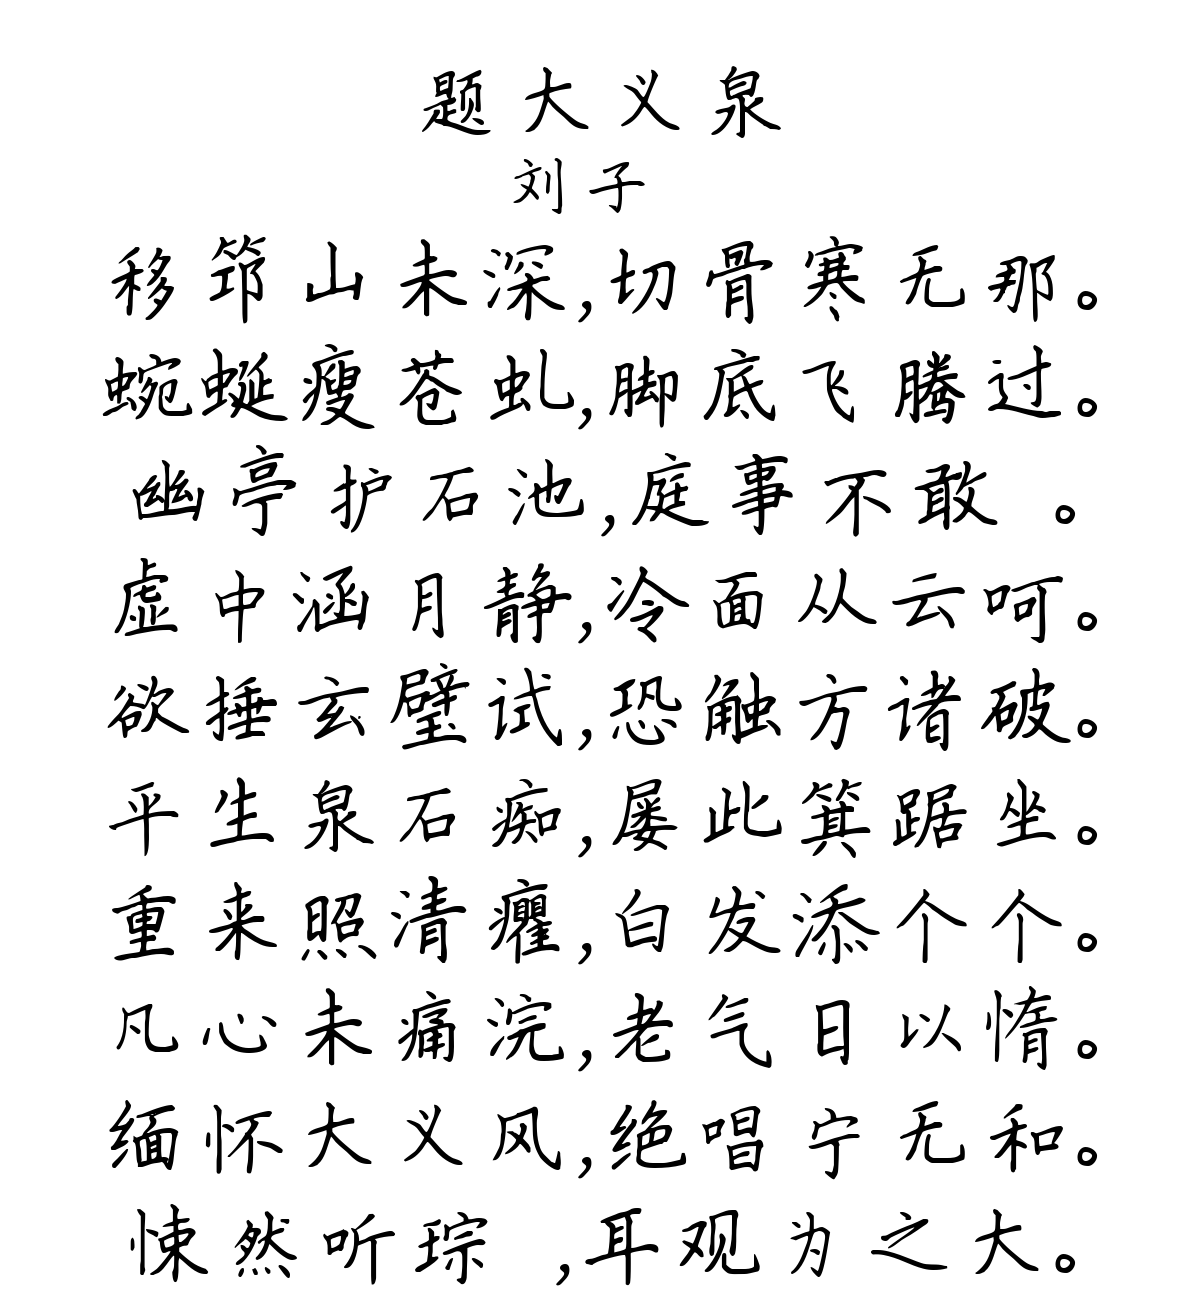 题大义泉
刘子
移筇山未深,切骨寒无那。
蜿蜒瘦苍虬,脚底飞腾过。
幽亭护石池,庭事不敢 。
虚中涵月静,冷面从云呵。
欲捶玄璧试,恐触方诸破。
平生泉石痴,屡此箕踞坐。
重来照清癯,白发添个个。
凡心未痛浣,老气日以惰。
缅怀大义风,绝唱宁无和。
悚然听琮 ,耳观为之大。